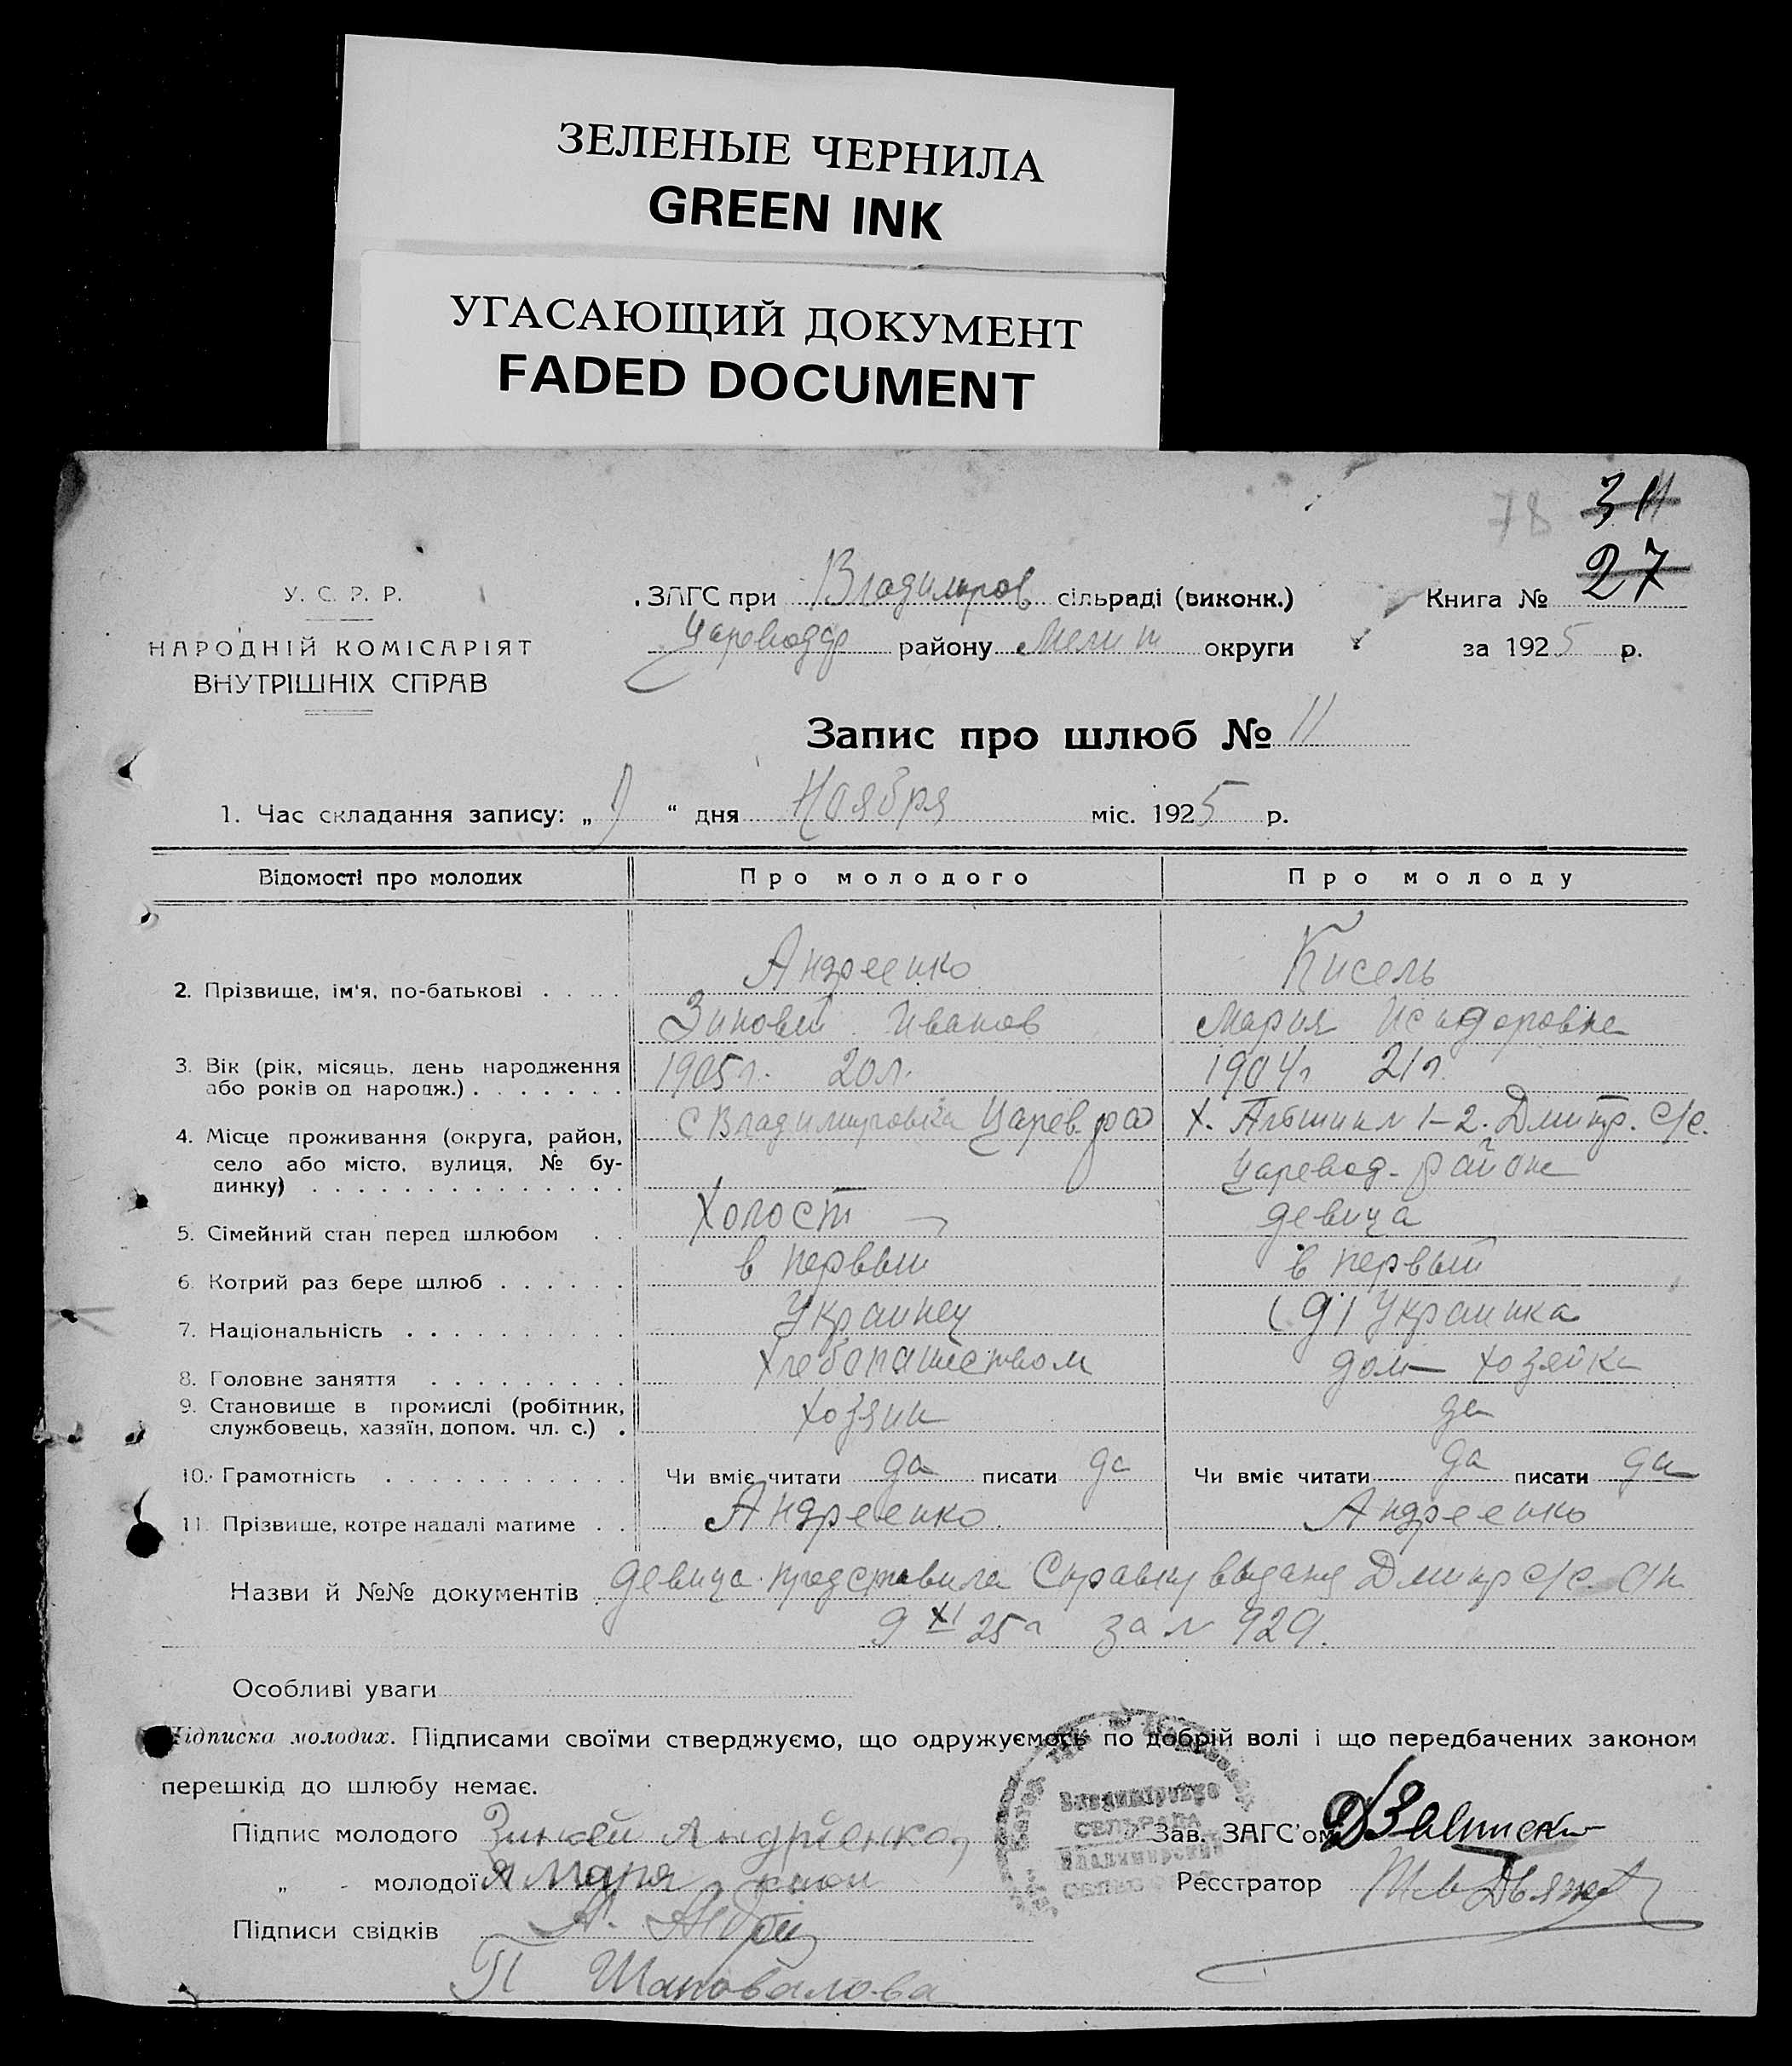 ЗЕЛЕНЫЕ ЧЕРНИЛА
GREEN INK
УГАСАЮЩИЙ ДОКУМЕНТ
FADED DOCUMENT
78 34
27
У. С. Р. Р.
НАРОДНІЙ КОМІСАРІЯТ
ВНУТРІШНІХ СПРАВ
ЗАГС при Владимиров сільраді (виконк.) Книга №
району Мелит округи за 1925 р.
Запис про шлюб № 11
1. Час складання запису: „ “ дня Ноября міс. 1925 р.
Відомості про молодих Про молодого Про молоду
2. Прізвище, ім'я, по-батькові Андреенко Кисель
Зиновий Иванов Мария Исидоровна
3. Вік (рік, місяць, день народження або років од народж.) 1905 г. 20 л. 1904 г 21 г.
4. Місце проживання (округа, район, село або місто, вулиця, № будинку) С Владимировка Царев. р-а Х. 1-2. Дмитр. с/с.
Царевод. района
5. Сімейний стан перед шлюбом Холост девица
6. Котрий раз бере шлюб в первый в первый
7. Національність Украинец Украинка
8. Головне заняття Хлебопашеством дом хозяйка
9. Становище в промислі (робітник, службовець, хазяїн, допом. чл. с.) хозяин да
10. Грамотність Чи вміє читати да писати да Чи вміє читати да писати да
11. Прізвище, котре надалі матиме Андреенко Андреенко
Назви й №№ документів девица представила Справку выдану Дмитр с/с. от
9 XI 25 г за № 929.
Особливі уваги
Підписка молодих. Підписами своїми стверджуємо, що одружуємось по добрій волі і що передбачених законом
перешкід до шлюбу немає.
Підпис молодого Зиновей Андриенко Зав. ЗАГС'ом
„ - молодої Я Маря Реєстратор
Підписи свідків А.
П Шаповалова